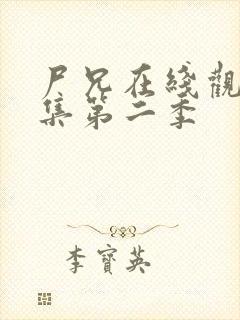 尸兄在綫觀
集第二季
李寶英